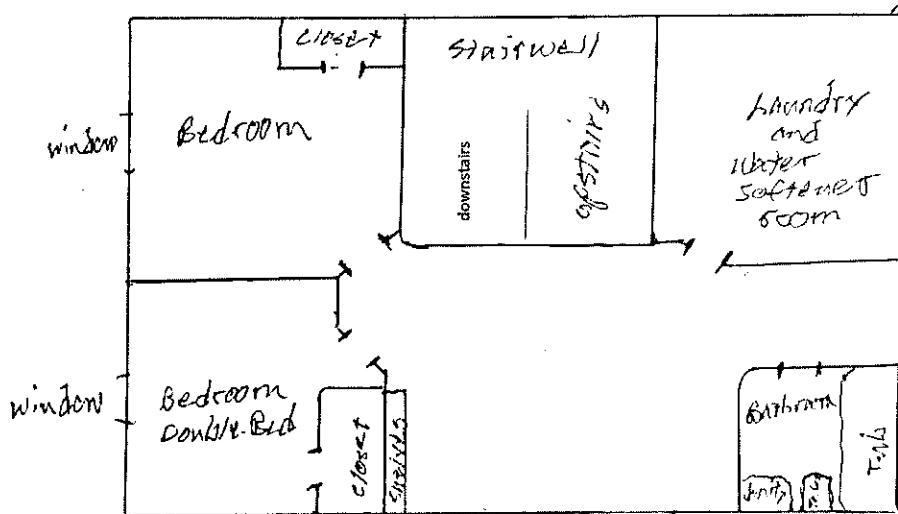 closet
Stairwell
Bedroom
window
downstairs
upstairs
Laundry
and
Water
Softener
room
window
Bedroom
Double-Bed
closet
shelves
Bathroom
Tub